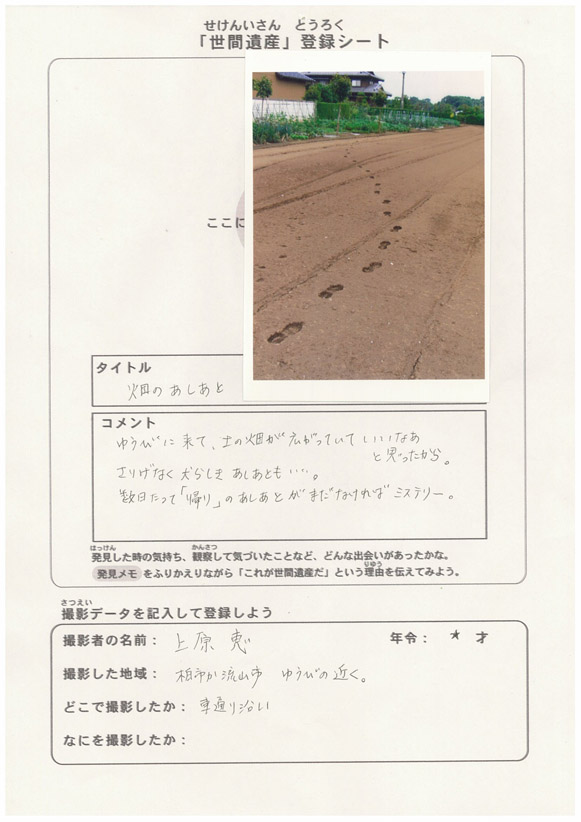 せけんいさん とうろく
「世間遺産」登録シート
ここに
タイトル
畑の あしあと
コメント
ゆうびに 来て、土の畑が 広がっていて いいなあ
と思ったから。
さりげなく 犬らしき あしあとも …。
数日たって「帰り」のあしあとが まだなければ ミステリー。
はっけん かんさつ
発見した時の気持ち、観察して気づいたことなど、どんな出会いがあったかな。
りゆう
発見メモ をふりかえりながら「これが世間遺産だ」という理由を伝えてみよう。
さつえい
撮影データを記入して登録しよう
撮影者の名前： 上原 恵 年令： ★ 才
撮影した地域： 柏市か流山市 ゆうびの近く。
どこで撮影したか： 車通り沿い
なにを撮影したか：